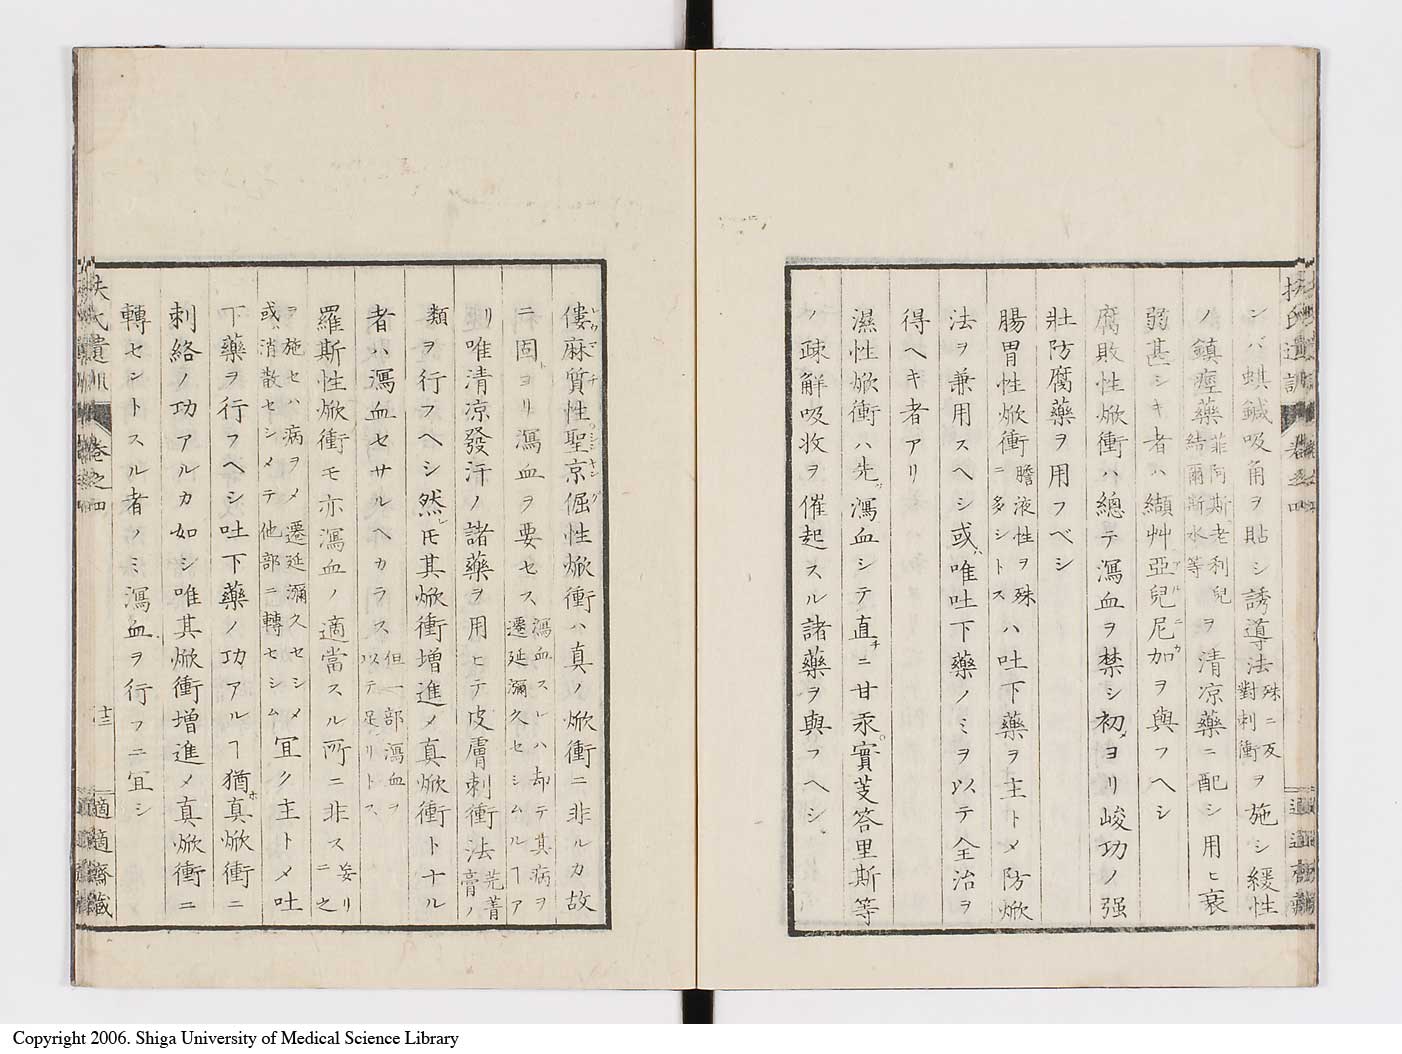 ンバ蜞鍼吸角ヲ貼シ誘導法殊ニ反對刺衝ヲ施シ緩性
ノ鎮痙藥菲阿斯老利兒結爾斯水等ヲ清凉藥ニ配シ用ヒ衰
弱甚シキ者ハ纈艸亞兒尼加ヲ與フヘシ
腐敗性焮衝ハ總テ瀉血ヲ禁シ初メヨリ峻功ノ强
壯防腐藥ヲ用フベシ
腸胃性焮衝膽液性ヲ殊ニ多シトスハ吐下藥ヲ主トメ防焮
法ヲ兼用スヘシ或ハ唯吐下藥ノミヲ以テ全治ヲ
得ヘキ者アリ
濕性焮衝ハ先ツ瀉血シテ直チニ甘汞實芰答里斯等
ノ疎解吸收ヲ催起スル諸藥ヲ與フヘシ
僂麻質性聖京倔性焮衝ハ真ノ焮衝ニ非ルカ故
ニ固トヨリ瀉血ヲ要セス瀉血スレハ却テ其病ヲ遷延瀰久セシムルヿア
リ唯清凉發汗ノ諸藥ヲ用ヒテ皮膚刺衝法芫菁膏ノ
類ヲ行フヘシ然レ𪜈其焮衝增進メ真焮衝トナル
者ハ瀉血セサルヘカラス但一部瀉血ヲ以テ足レリトス
羅斯性焮衝モ亦瀉血ノ適當スル所ニ非ス妄リニ之
ヲ施セハ病ヲメ遷延瀰久セシメ或ハ消散セシメテ他部ニ轉セシム宜ク主トメ吐
下藥ヲ行フヘシ吐下藥ノ功アルヿ猶ホ真焮衝ニ
刺絡ノ功アルカ如シ唯其焮衝增進メ真焮衝ニ
轉セントスル者ノミ瀉血ヲ行フニ宜シ
扶氏遺訓 卷之四 十三 適適齋藏
Copyright 2006. Shiga University of Medical Science Library